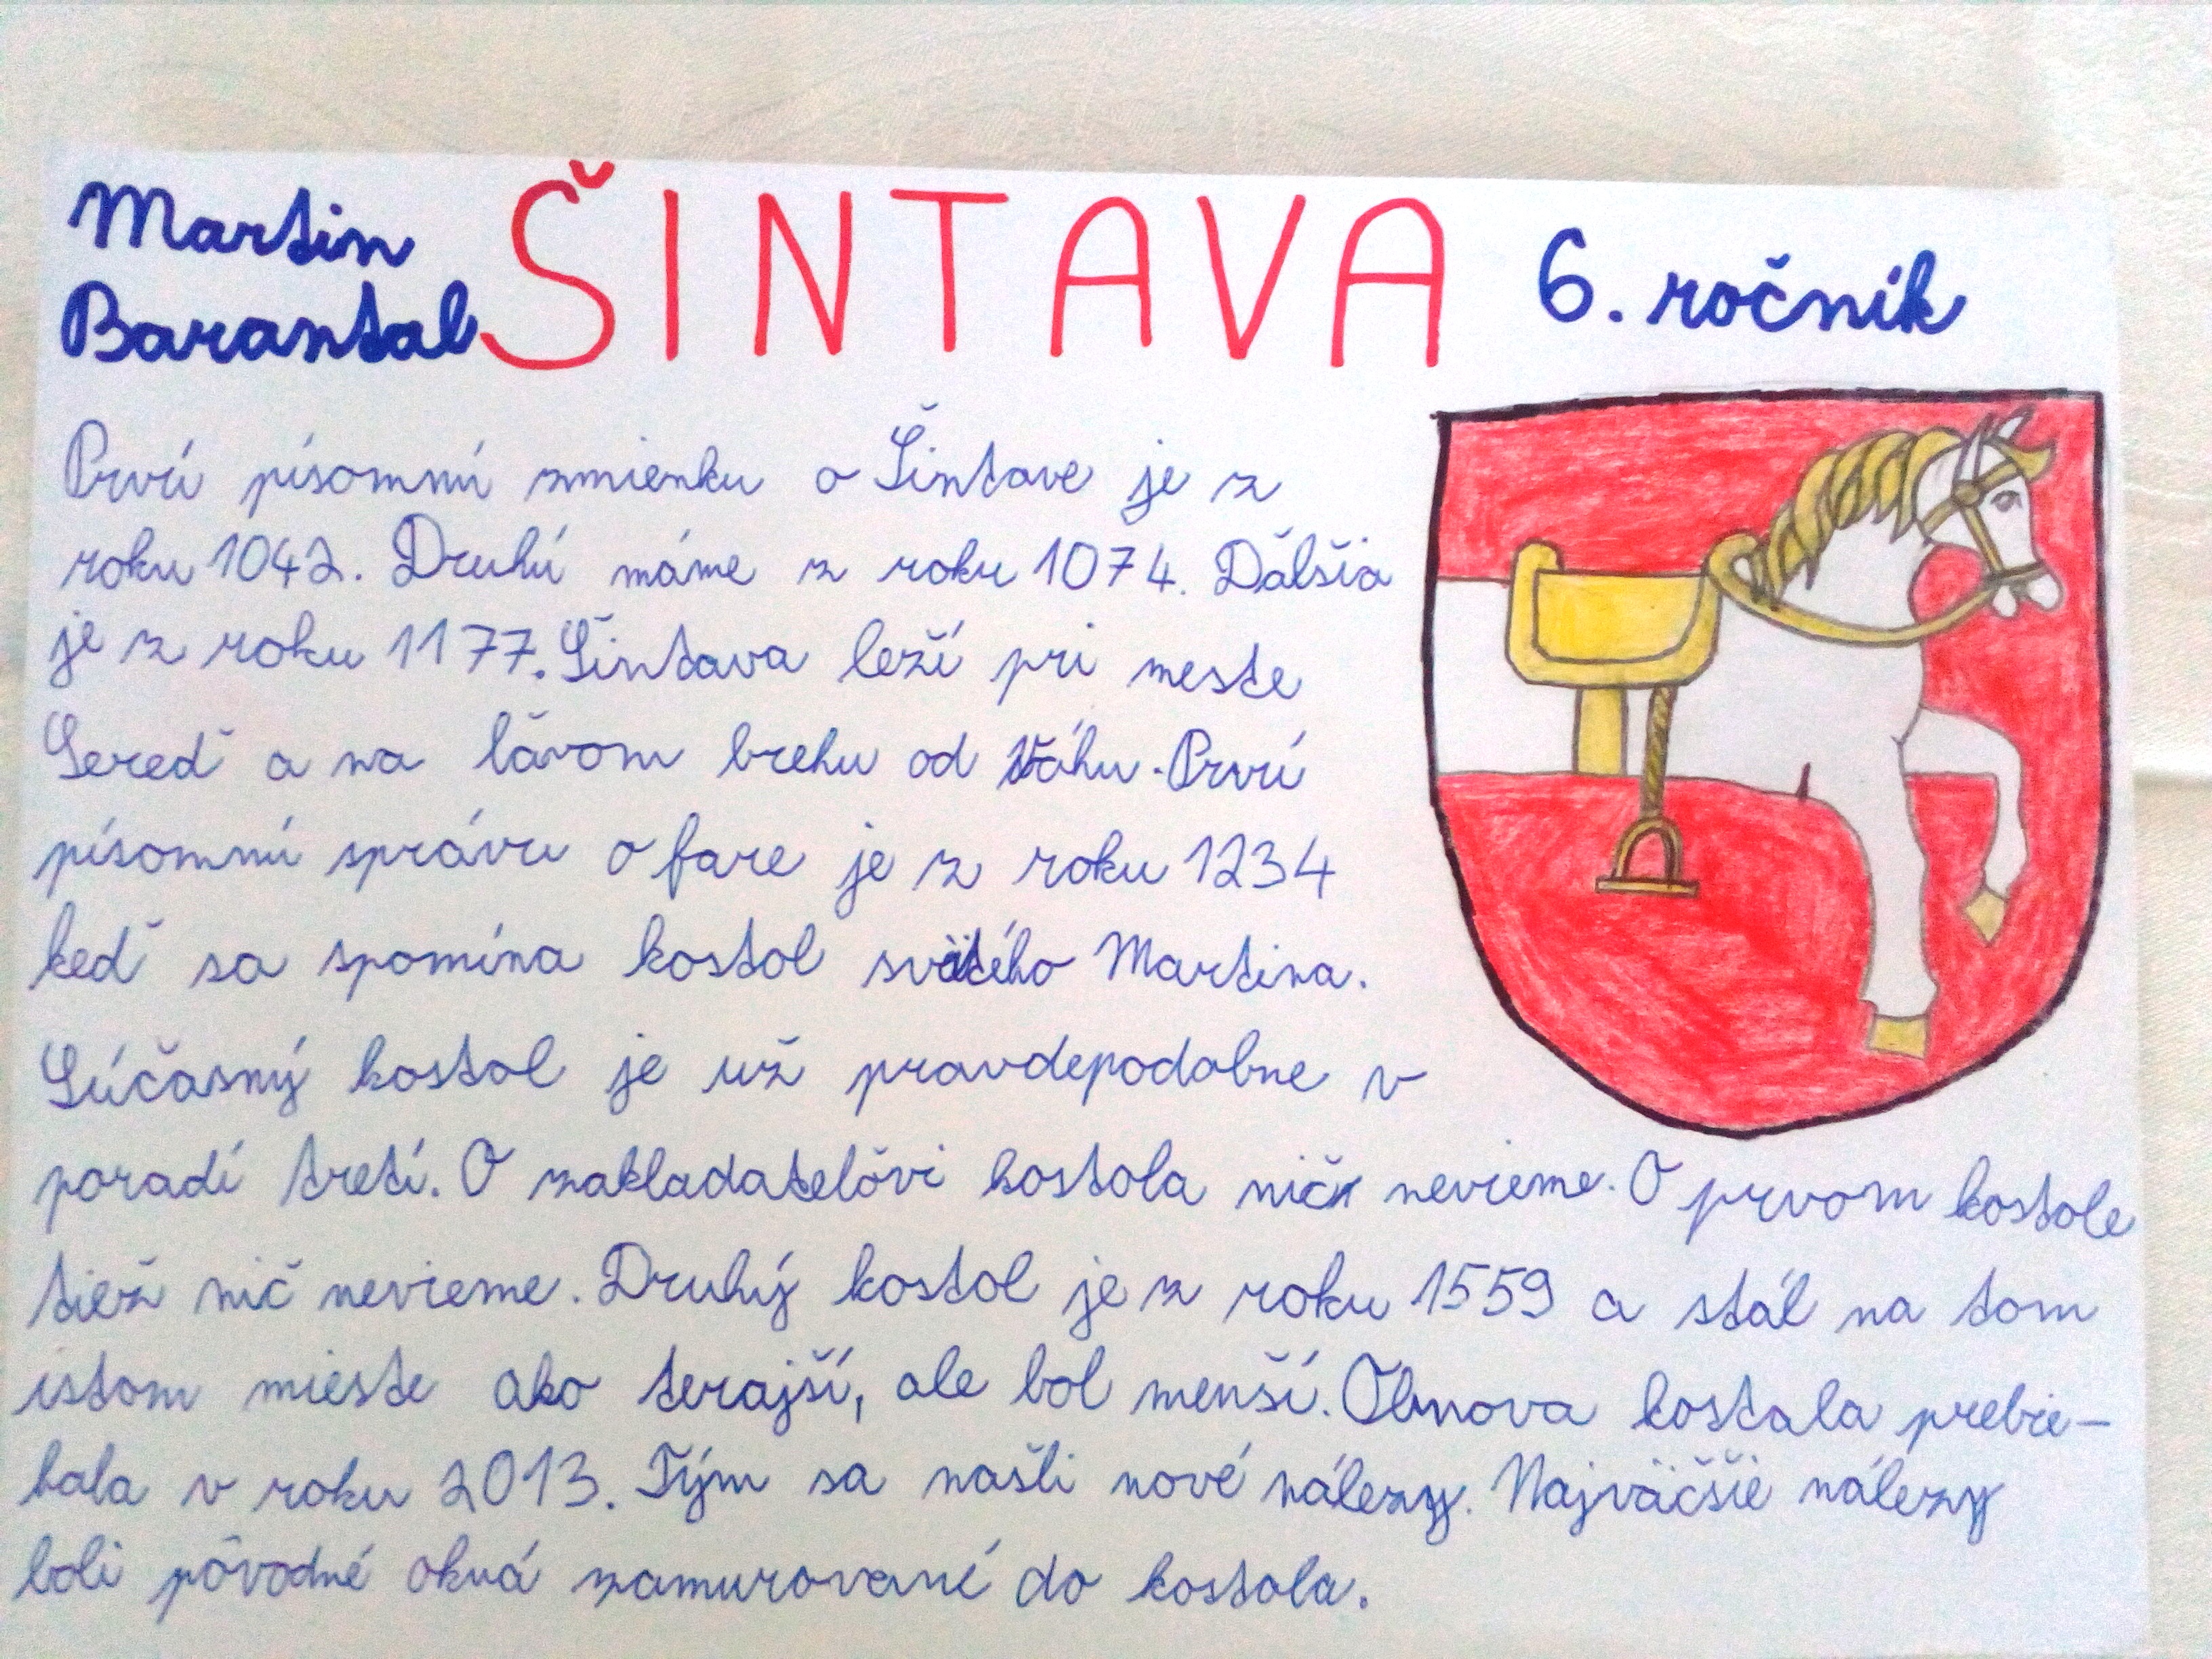 Martin ŠINTAVA 6. ročník
Barantal
Prvú písomnú zmienku o Šintave je z
roku 1042. Druhú máme z roku 1074. Dálšia
je z roku 1177. Šintava leží pri meste
Sereď a na lǎvom brehu od Váhu. Prvú
písomnú správu o fare je z roku 1234
keď sa spomína kostol svätého Martina.
Súčasný kostol je už pravdepodobne v
poradí tretí. O zakladatelǒvi kostola nič nevieme. O prvom kostole
tiež nič nevieme. Druhý kostol je z roku 1559 a stál na tom
istom mieste ako terajší, ale bol menší. Obnova kostala prebie-
hala v roku 2013. Tým sa našli nové nálezy. Najväčšie nálezy
boli pôvodné okná zamurované do kostola.